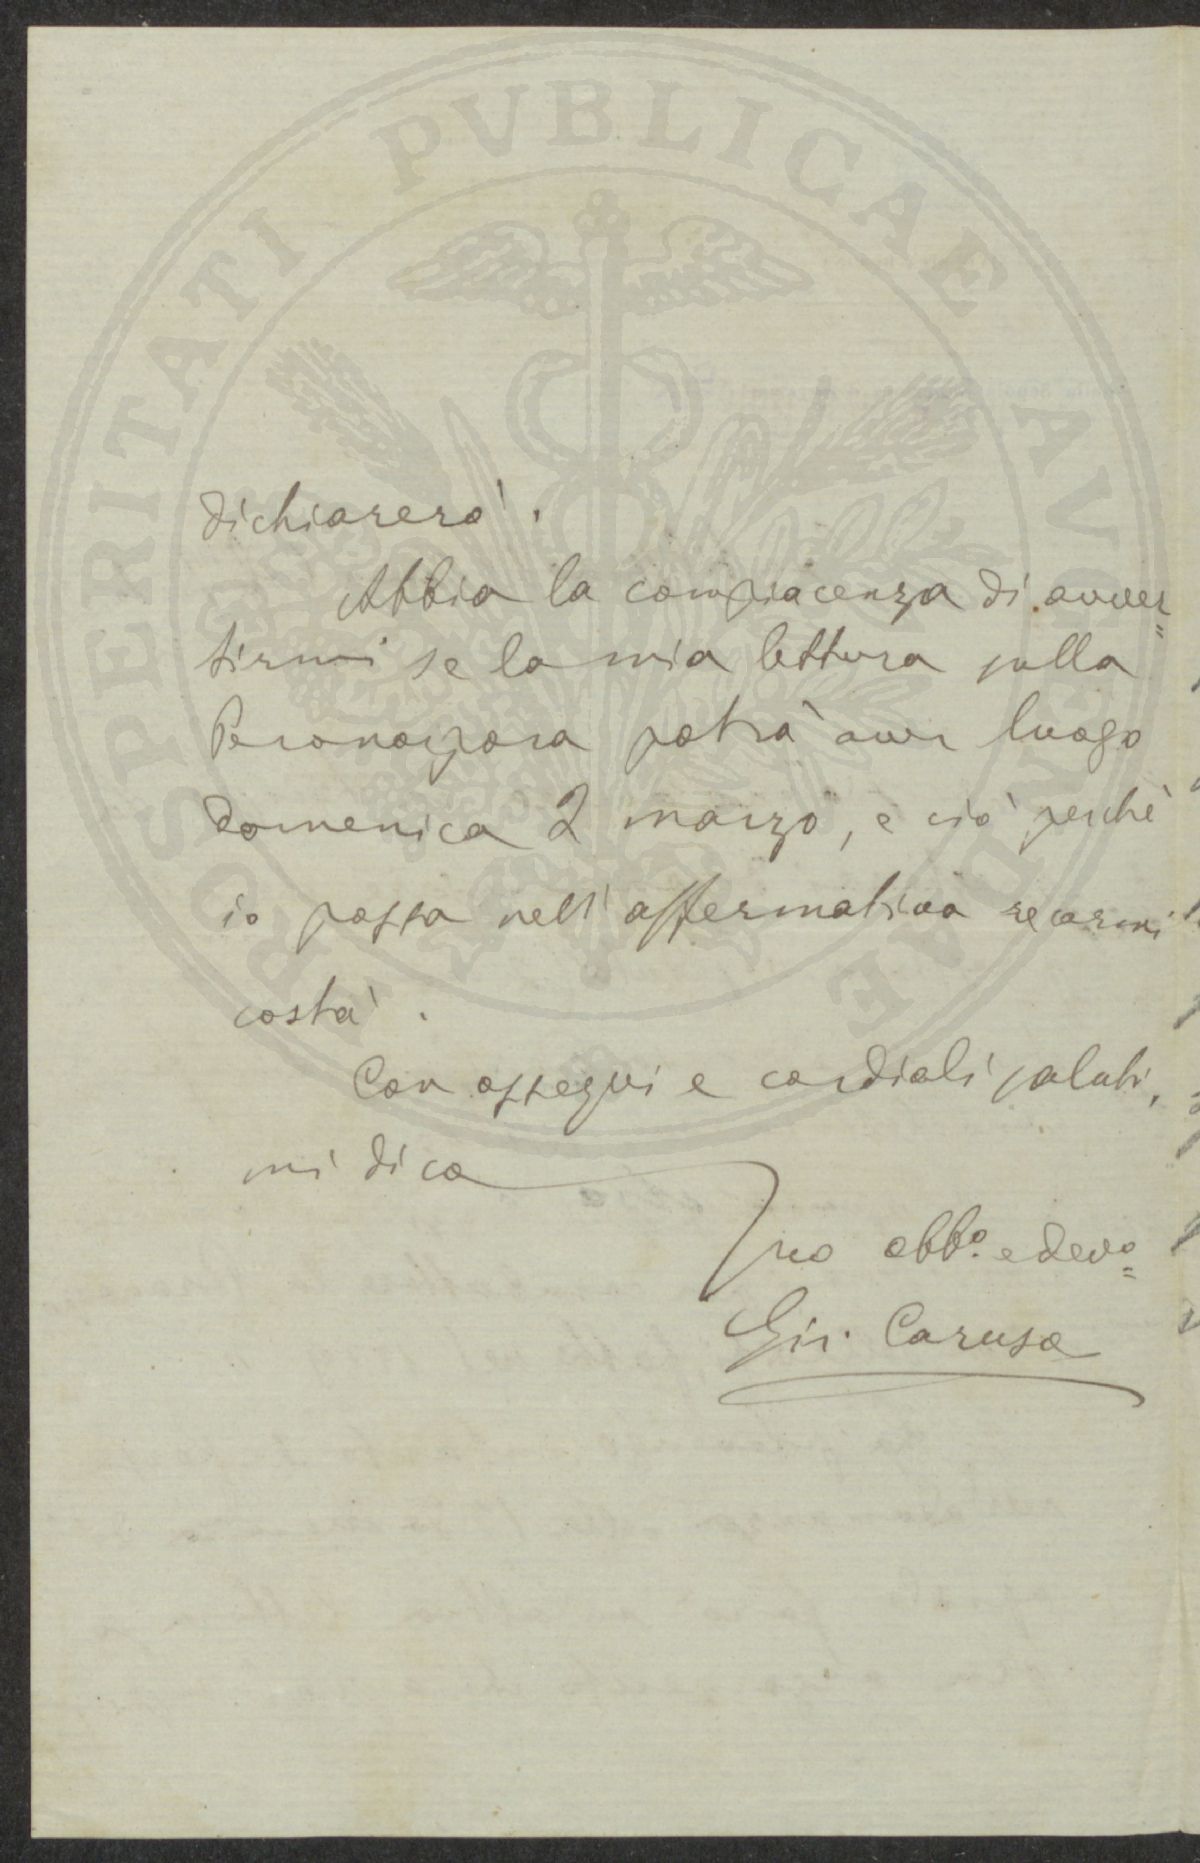 PROSPERITATI PVBLICAE AVGENDAE
dichiarerò.
Abbia la compiacenza di avver=
tirmi se la mia lettura sulla
Peronospora potrà aver luogo
domenica 2 marzo, e ciò perchè
io possa nell'affermativa recarmi
costà.
Con ossequi e cordiali saluti,
mi dico
Suo obbº. e devº=
Gir. Caruso